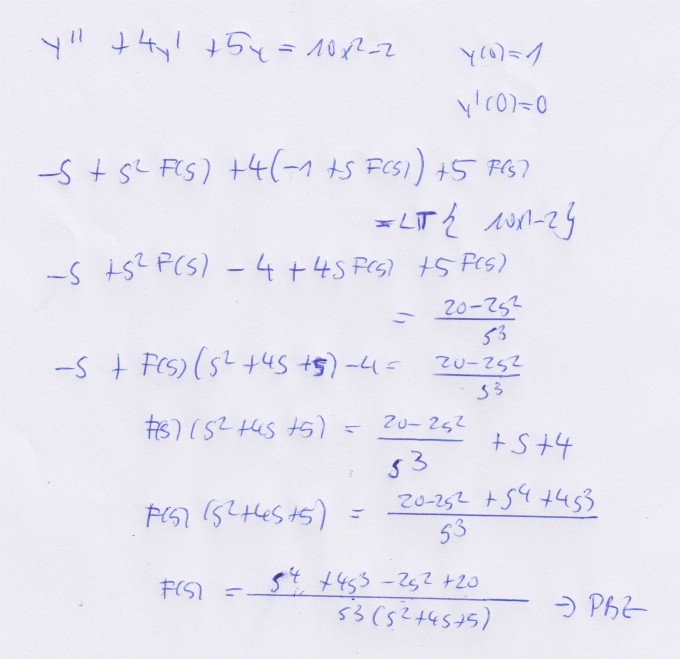 y'' + 4y' + 5y = 10x²-2 y(0)=1
y'(0)=0
-s + s² F(s) + 4(-1 + s F(s)) + 5 F(s)
= LT{ 10x²-2}
-s + s² F(s) - 4 + 4s F(s) + 5 F(s)
= (20-2s²)/s³
-s + F(s) (s² + 4s + 5) - 4 = (20-2s²)/s³
F(s) (s² + 4s + 5) = (20-2s²)/s³ + s + 4
F(s) (s² + 4s + 5) = (20-2s² + s⁴ + 4s³)/s³
F(s) = (s⁴ + 4s³ - 2s² + 20)/(s³ (s² + 4s + 5)) → PBZ